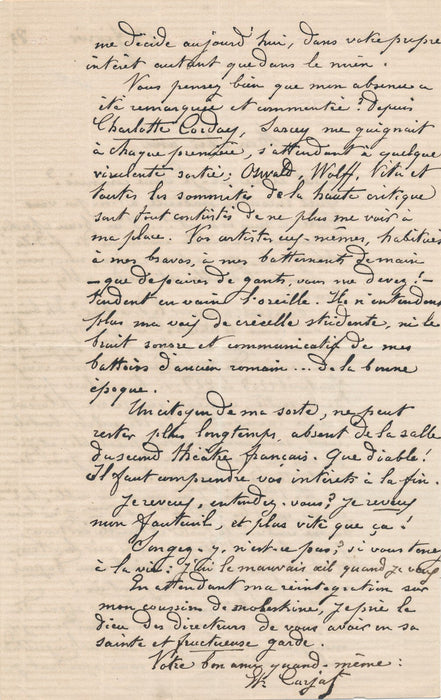 me décide aujourd'hui, dans votre propre
intérêt autant que dans le mien.
Vous pensez bien que mon absence a
été remarquée et commentée ? depuis
Charlotte Corday, Sarcey me guignait
à chaque première, s'attendant à quelque
virulente sortie ; Oswald, Wolff, Vitu et
toutes les sommités de la haute critique
sont tout contristés de ne plus me voir à
ma place. Vos artistes eux-mêmes, habitués
à mes bravos, à mes battements de main
— que de paires de gants, vous me devez ! —
tendent en vain l'oreille. Ils n'entendent
plus ma voix de crécelle stridente, ni le
bruit sonore et communicatif de mes
battoirs d'ancien romain... de la bonne
époque.
Un citoyen de ma sorte, ne peut
rester plus longtemps, absent de la salle
du second théâtre français. Que diable !
Il faut comprendre vos intérêts à la fin.
Je reveux, entendez-vous ? je reveux
mon fauteuil, et plus vite que ça !
Songez-y, n'est-ce pas ? si vous tenez
à la vie : J'ai le mauvais œil quand je veux
En attendant ma réintégration sur
mon coussin de moleskine, je prie le
dieu des directeurs de vous avoir en sa
sainte et fructueuse garde.
Votre bon ami quand-même :
Et. Carjat